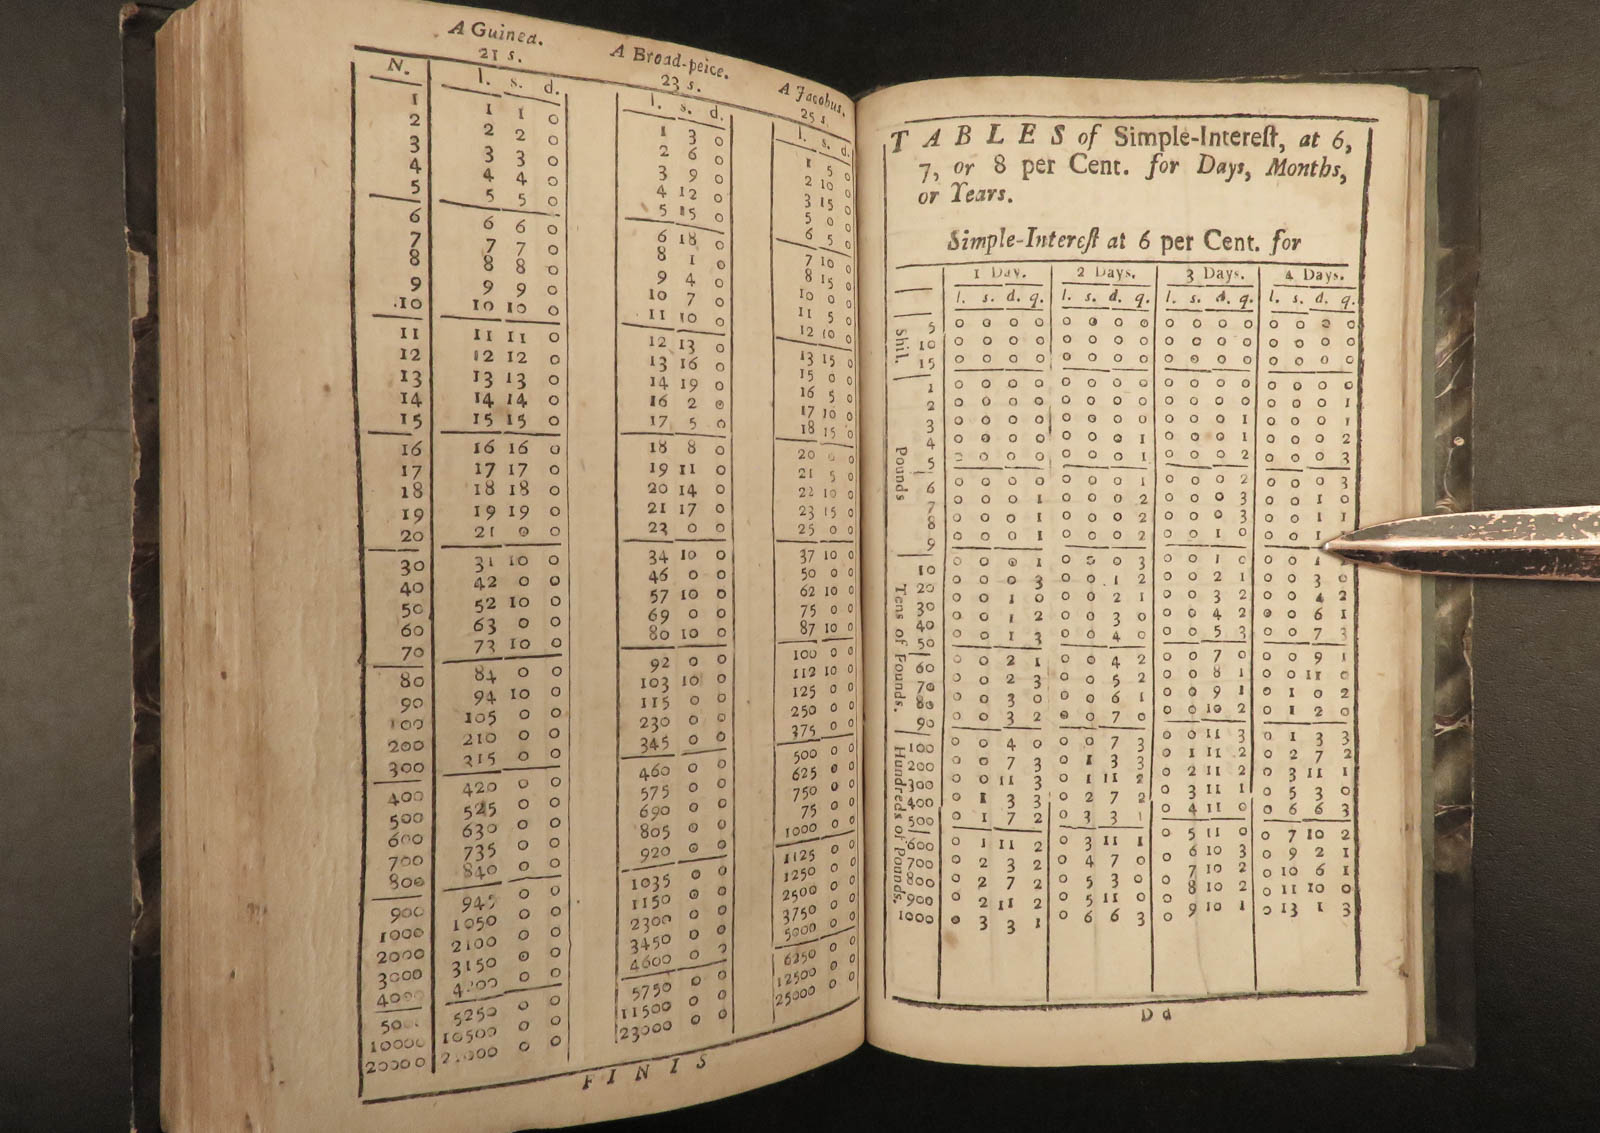 A Guinea. A Broad-peice. A Jacobus.
21 s. 23 s. 25 s.
N. l. s. d. l. s. d. l. s. d.
1 1 1 0 1 3 0 1 5 0
2 2 2 0 2 6 0 2 10 0
3 3 3 0 3 9 0 3 15 0
4 4 4 0 4 12 0 5 0 0
5 5 5 0 5 15 0 6 5 0
6 6 6 0 6 18 0 7 10 0
7 7 7 0 8 1 0 8 15 0
8 8 8 0 9 4 0 10 0 0
9 9 9 0 10 7 0 11 5 0
10 10 10 0 11 10 0 12 10 0
11 11 11 0 12 13 0 13 15 0
12 12 12 0 13 16 0 15 0 0
13 13 13 0 14 19 0 16 5 0
14 14 14 0 16 2 0 17 10 0
15 15 15 0 17 5 0 18 15 0
16 16 16 0 18 8 0 20 0 0
17 17 17 0 19 11 0 21 5 0
18 18 18 0 20 14 0 22 10 0
19 19 19 0 21 17 0 23 15 0
20 21 0 0 23 0 0 25 0 0
30 31 10 0 34 10 0 37 10 0
40 42 0 0 46 0 0 50 0 0
50 52 10 0 57 10 0 62 10 0
60 63 0 0 69 0 0 75 0 0
70 73 10 0 80 10 0 87 10 0
80 84 0 0 92 0 0 100 0 0
90 94 10 0 103 10 0 112 10 0
100 105 0 0 115 0 0 125 0 0
200 210 0 0 230 0 0 250 0 0
300 315 0 0 345 0 0 375 0 0
400 420 0 0 460 0 0 500 0 0
500 525 0 0 575 0 0 625 0 0
600 630 0 0 690 0 0 750 0 0
700 735 0 0 805 0 0 75 0 0
800 840 0 0 920 0 0 1000 0 0
900 945 0 0 1035 0 0 1125 0 0
1000 1050 0 0 1150 0 0 1250 0 0
2000 2100 0 0 2300 0 0 2500 0 0
3000 3150 0 0 3450 0 0 3750 0 0
4000 4200 0 0 4600 0 0 5000 0 0
5250 0 0 5750 0 0 6250 0 0
10000 10500 0 0 11500 0 0 12500 0 0
20000 21000 0 0 23000 0 0 25000 0 0
FINIS
TABLES of Simple-Intereſt, at 6,
7, or 8 per Cent. for Days, Months,
or Years.
Simple-Intereſt at 6 per Cent. for
1 Day. 2 Days. 3 Days. 4 Days.
l. s. d. q. l. s. d. q. l. s. d. q. l. s. d. q.
Shil.
5 0 0 0 0 0 0 0 0 0 0 0 0 0 0 0 0
10 0 0 0 0 0 0 0 0 0 0 0 0 0 0 0 0
15 0 0 0 0 0 0 0 0 0 0 0 0 0 0 0 0
Pounds
1 0 0 0 0 0 0 0 0 0 0 0 0 0 0 0 0
2 0 0 0 0 0 0 0 0 0 0 0 0 0 0 0 1
3 0 0 0 0 0 0 0 0 0 0 0 1 0 0 0 1
4 0 0 0 0 0 0 0 1 0 0 0 1 0 0 0 2
5 0 0 0 0 0 0 0 1 0 0 0 2 0 0 0 3
6 0 0 0 0 0 0 0 1 0 0 0 2 0 0 0 3
7 0 0 0 1 0 0 0 2 0 0 0 3 0 0 1 0
8 0 0 0 1 0 0 0 2 0 0 0 3 0 0 1 1
9 0 0 0 1 0 0 0 2 0 0 1 0 0 0 1
Tens of Pounds.
10 0 0 0 1 0 0 0 3 0 0 1 0 0 0 1 1
20 0 0 0 3 0 0 1 2 0 0 2 1 0 0 3 0
30 0 0 1 0 0 0 2 1 0 0 3 2 0 0 4 2
40 0 0 1 2 0 0 3 0 0 0 4 2 0 0 6 1
50 0 0 1 3 0 0 4 0 0 0 5 3 0 0 7 3
60 0 0 2 1 0 0 4 2 0 0 7 0 0 0 9 1
70 0 0 2 3 0 0 5 2 0 0 8 1 0 0 11 0
80 0 0 3 0 0 0 6 1 0 0 9 1 0 1 0 2
90 0 0 3 2 0 0 7 0 0 0 10 2 0 1 2 0
Hundreds of Pounds.
100 0 0 4 0 0 0 7 3 0 0 11 3 0 1 3 3
200 0 0 7 3 0 1 3 3 0 1 11 2 0 2 7 2
300 0 0 11 3 0 1 11 2 0 2 11 2 0 3 11 1
400 0 1 3 3 0 2 7 2 0 3 11 1 0 5 3 0
500 0 1 7 2 0 3 3 1 0 4 11 0 0 6 6 3
600 0 1 11 2 0 3 11 1 0 5 11 0 0 7 10 2
700 0 2 3 2 0 4 7 0 0 6 10 3 0 9 2 1
800 0 2 7 2 0 5 3 0 0 7 10 2 0 10 6 1
900 0 2 11 2 0 5 11 0 0 8 10 2 0 11 10 0
1000 0 3 3 1 0 6 6 3 0 9 10 1 0 13 1 3
D d